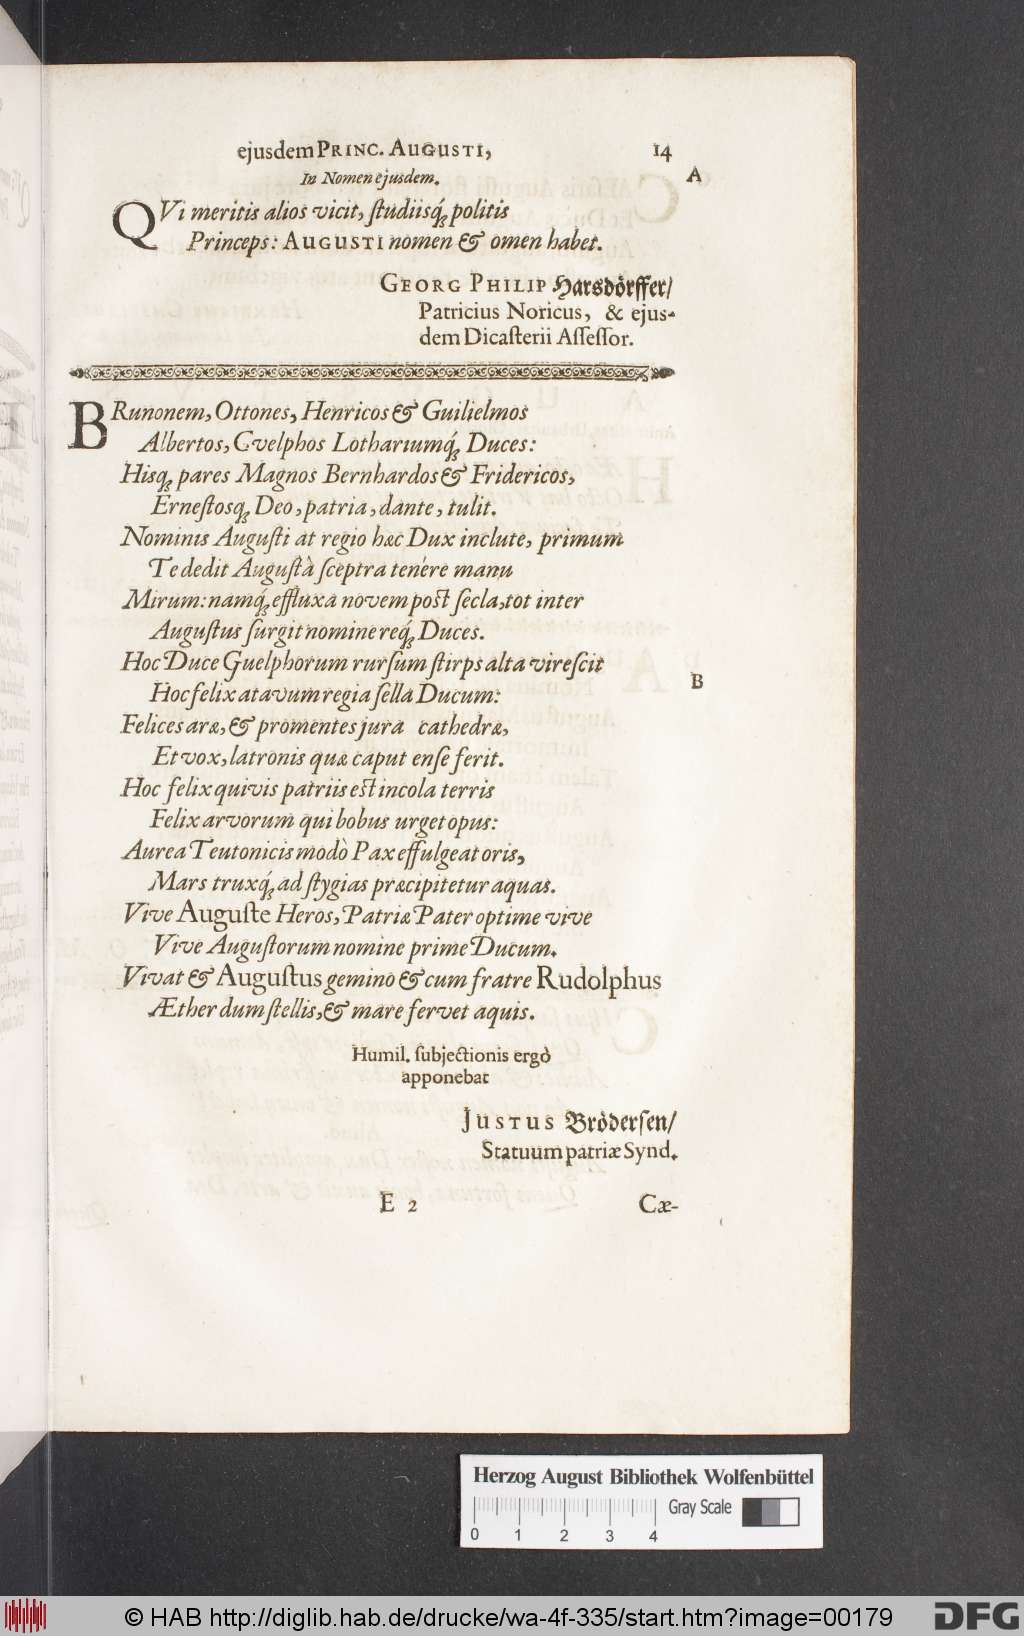 ejusdem PRINC. AUGUSTI, 14
In Nomen ejusdem. A
QVi meritis alios vicit, ſtudiisq́; politis
Princeps: AUGUSTI nomen & omen habet.
GEORG PHILIP Harsdörffer/
Patricius Noricus, & ejus-
dem Dicaſterii Aſſeſſor.
BRunonem, Ottones, Henricos & Guilielmos
Albertos, Gvelphos Lothariumq́; Duces:
Hisq; pares Magnos Bernhardos & Fridericos,
Erneſtosq; Deo, patria, dante, tulit.
Nominis Auguſti at regio hæc Dux inclute, primum
Te dedit Auguſtà ſceptra tenére manu
Mirum: namq́; effluxa novem poſt ſecla, tot inter
Auguſtus ſurgit nomine req́; Duces.
Hoc Duce Guelphorum rurſum ſtirps alta vireſcit
Hoc felix atavum regia ſella Ducum: B
Felices aræ, & promentes jura cathedræ,
Et vox, latronis quæ caput enſe ferit.
Hoc felix quivis patriis eſt incola terris
Felix arvorum qui bobus urget opus:
Aurea Teutonicis modò Pax effulgeat oris,
Mars truxq́; ad ſtygias præcipitetur aquas.
Vive Auguſte Heros, Patriæ Pater optime vive
Vive Auguſtorum nomine prime Ducum.
Vivat & Auguſtus gemino & cum fratre Rudolphus
Æther dum ſtellis, & mare fervet aquis.
Humil. ſubjectionis ergò
apponebat
JUSTUS Bröderſen/
Statuum patriæ Synd.
E 2 Cæ-
Herzog August Bibliothek Wolfenbüttel
Gray Scale
0 1 2 3 4
© HAB http://diglib.hab.de/drucke/wa-4f-335/start.htm?image=00179 DFG